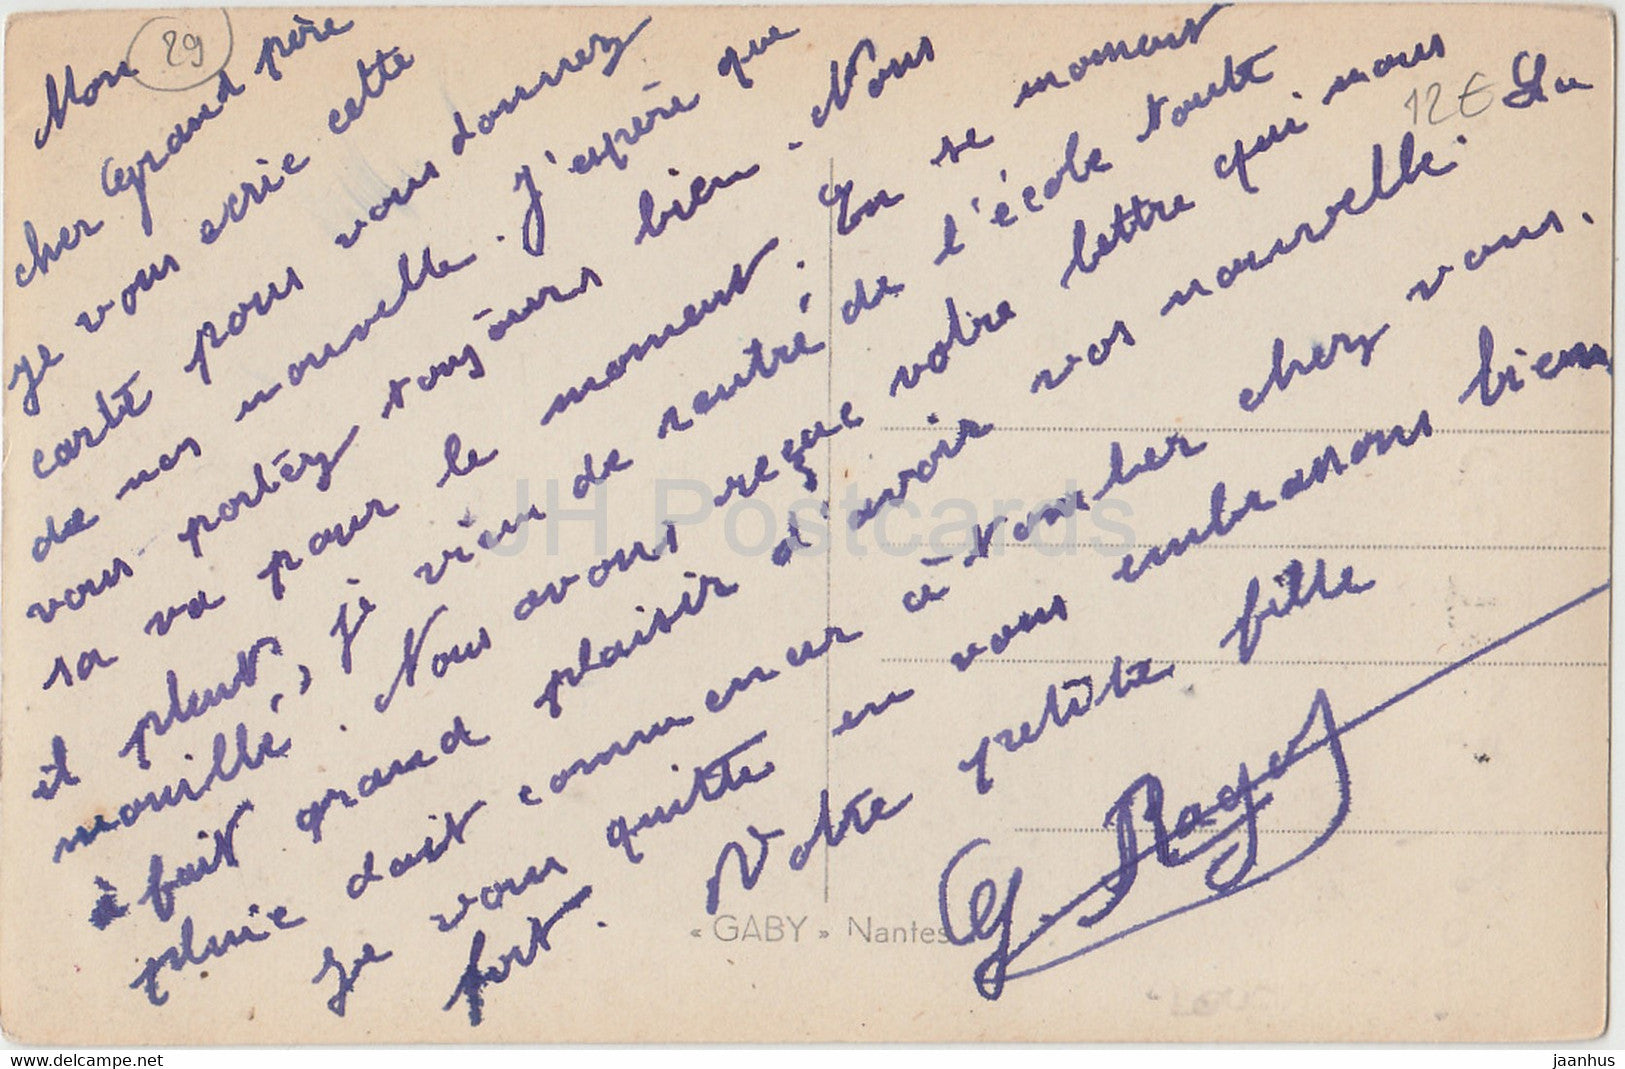 Mon
cher Grand père
je vous ecrie cette
carte pour vous donnez
de nos nouvelle. J'espère que
vous portéz toujours bien. Nous
sa va pour le moment. En se moment
il pleut, je vien de rentré de l'école toute
mouillé. Nous avons reçue votre lettre qui nous
à fait grand plaisir d'avoir vos nouvelle. La
pluie doit commencer à tomber chez vous.
Je vous quitte en vous embrasons bien
fort. Votre petite fille
G. Ragot
29
12€
« GABY » Nantes
JH Postcards
hippostcard.com
jaanhus